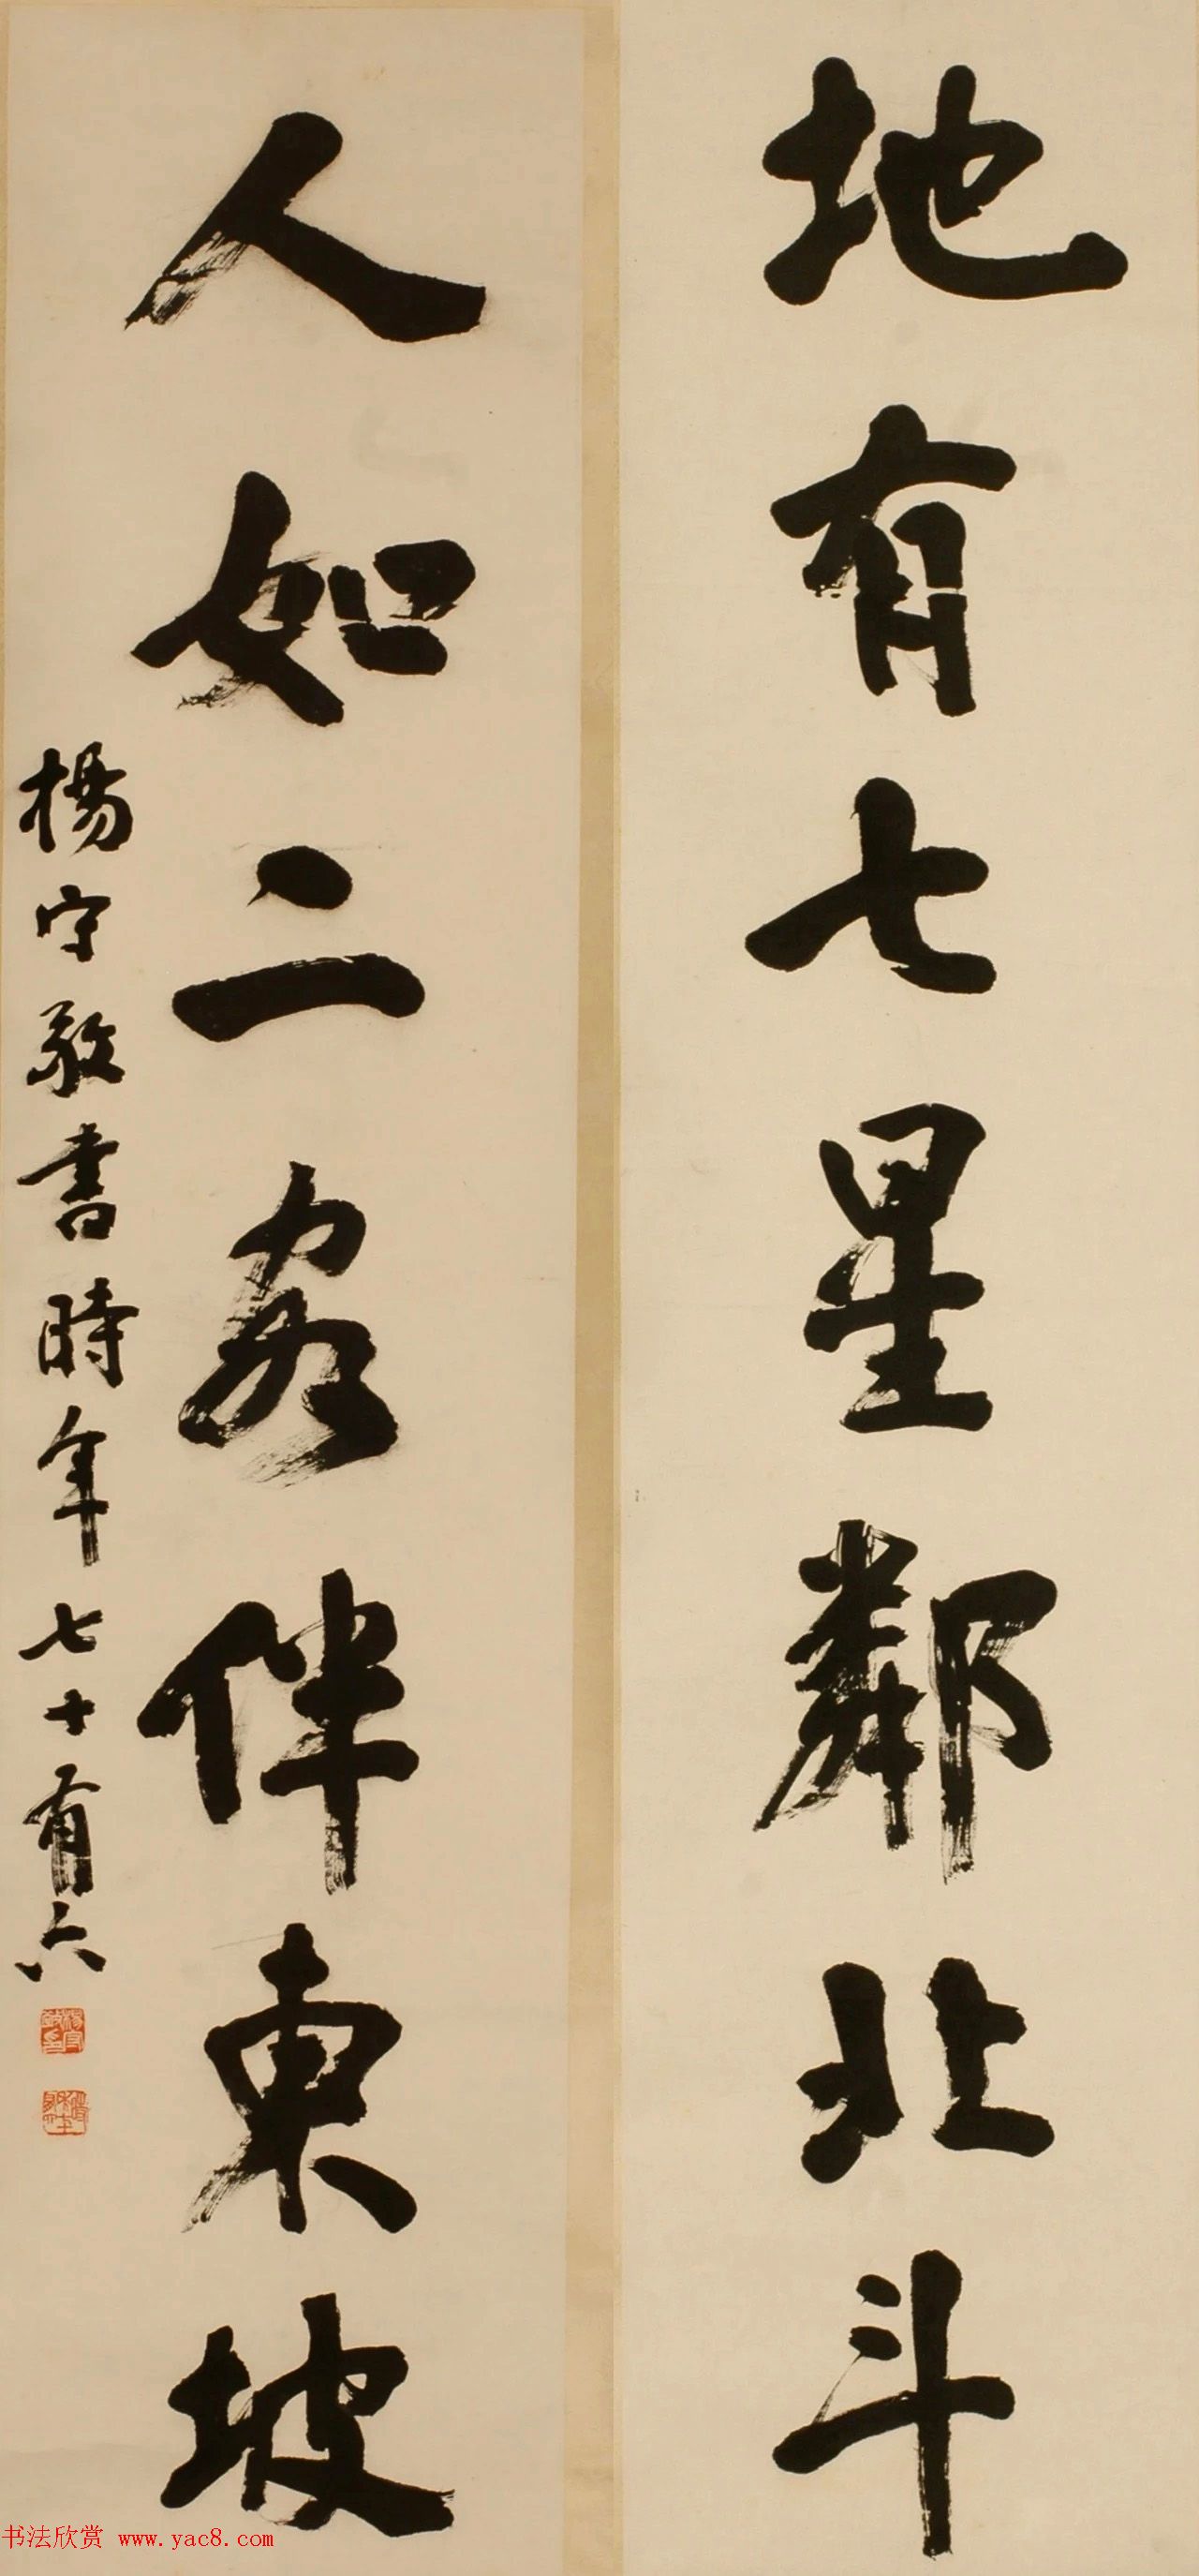 地有七星鄰北斗
人如二客伴東坡
楊守敬書時年七十有六
书法欣赏 www.yac8.com